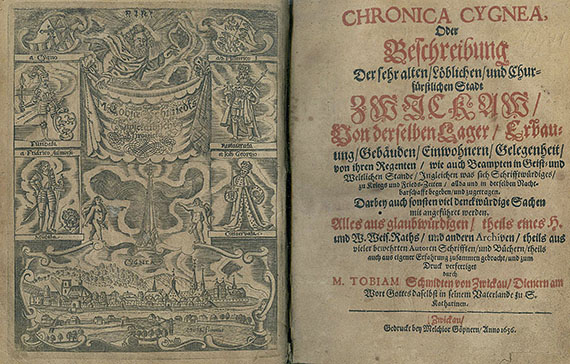 a Cygno
ab Henrico I
M. Tobiæ Schmiedts
Chronica
Fundata
Restaurata
a Fridrico Admorso
a Joh Georgio
Conservata
CYGNEA
CHRONICA CYGNEA,
Oder
Beschreibung
Der sehr alten/Löblichen/und Chur-
fürstlichen Stadt
ZWICKAW/
Von derselben Lager/ Erbau-
ung/Gebäuden/Einwohnern/Gelegenheit/
von ihren Regenten/ wie auch Beampten in Geist- und
Weltlichen Stande/ Ingleichen was sich Schrifftwürdiges/
zu Kriegs und Frieds-Zeiten/ allda und in derselben Nach-
barschafft begeben/und zugetragen.
Darbey auch sonsten viel denckwürdige Sachen
mit angeführet werden.
Alles aus glaubwürdigen/ theils eines E.
und W. Weis. Raths/ und andern Archiven/ theils aus
vieler bewehrten Autoren Schrifften/und Büchern/theils
auch aus eigner Erfahrung zusammen gebracht/und zum
Druck verfertiget
durch
M. TOBIAM Schmidten von Zwickau/ Dienern am
Wort Gottes daselbst in seinem Vaterlande zu S.
Katharinen.
Zwickau/
Gedruckt bey Melchior Göpnern/ Anno 1656.